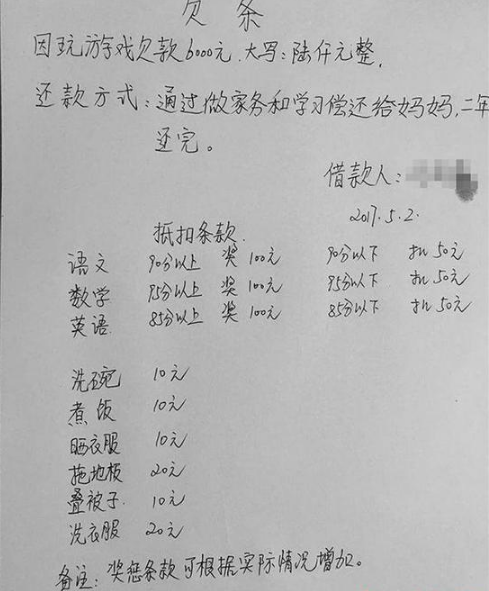 欠条
因玩游戏欠款6000元,大写:陆仟元整,
还款方式:通过做家务和学习偿还给妈妈,二年
还完。
借款人:
2017.5.2.
抵扣条款
语文 90分以上 奖100元 90分以下 扣50元
数学 95分以上 奖100元 95分以下 扣50元
英语 85分以上 奖100元 85分以下 扣50元
洗碗 10元
煮饭 10元
晒衣服 10元
拖地板 20元
叠被子 10元
洗衣服 20元
备注:奖惩条款可根据实际情况增加。